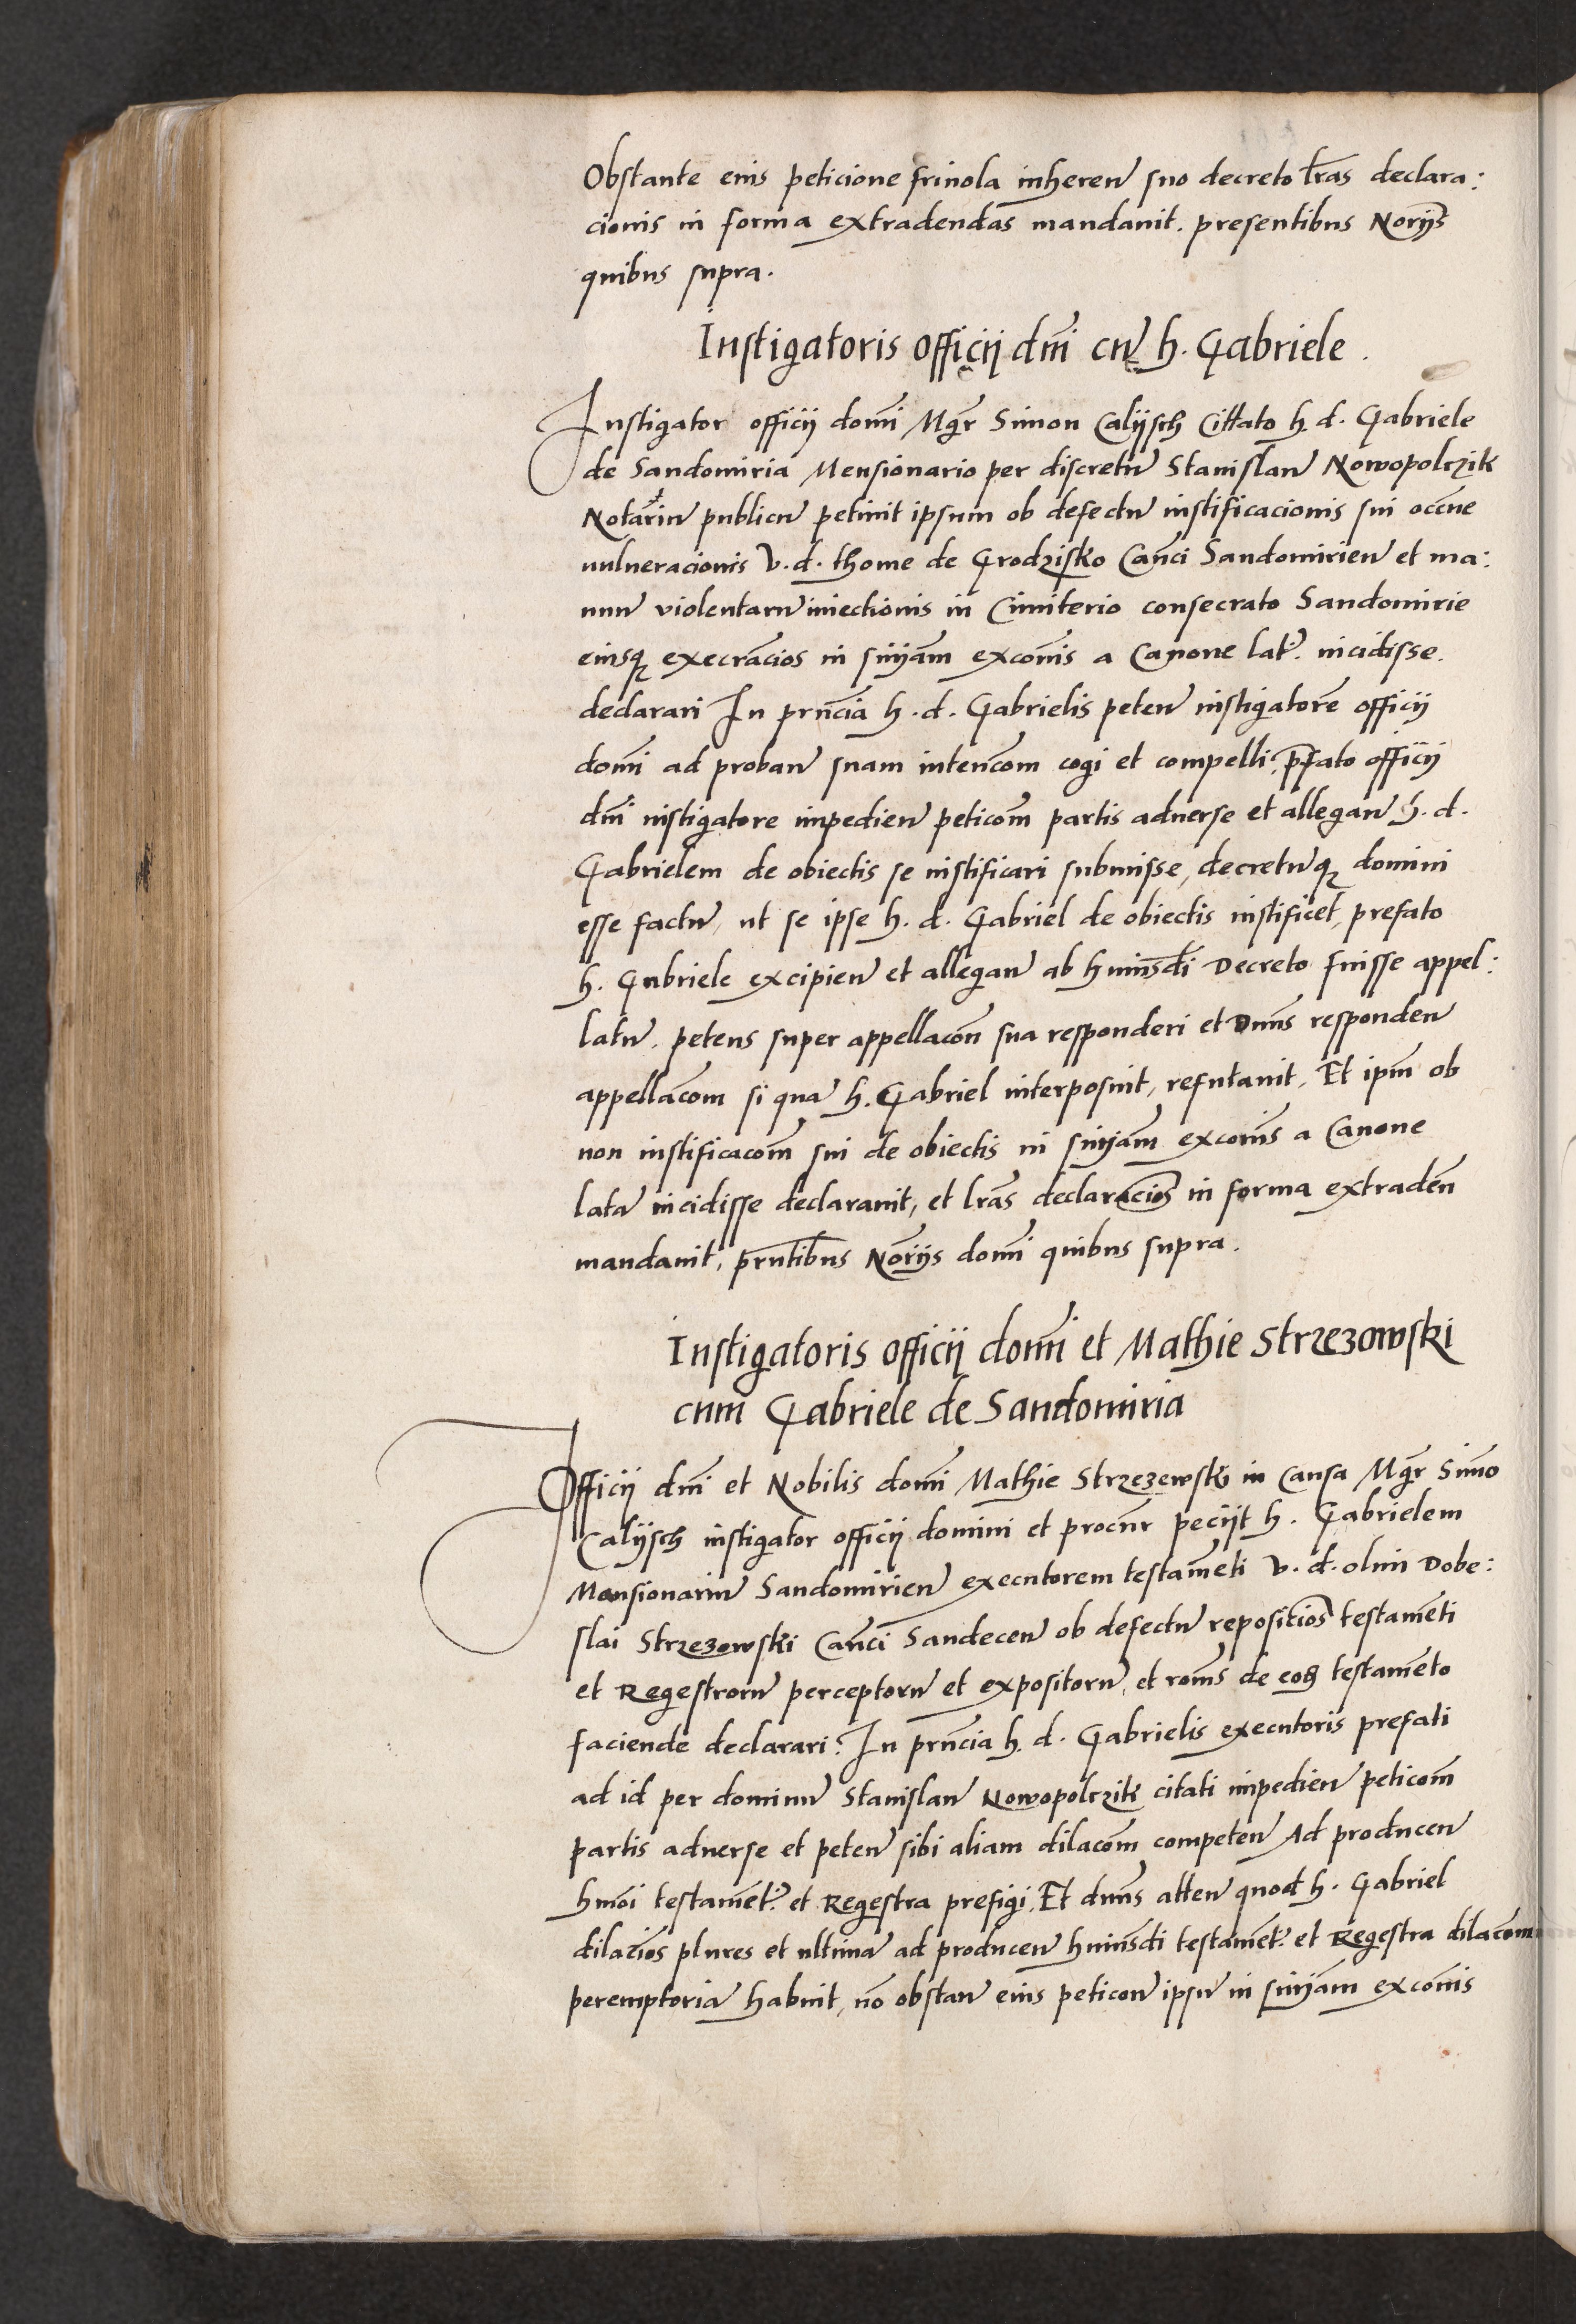 Obstante eius peticione frivola inheren̄ suo decreto lr̄as declara:
cionis in forma extradendas mandavit. presentibus Norijs
quibus supra.
Instigatoris officij dn̄i cu̅ h. Gabriele.
Instigator officij dom̄i Mgr̄ Simon Calijsch Cittato h. d. Gabriele
de Sandomiria Mensionario per discretu̅ Stanislau̅ Nowopolczik
Notariu̅ publicu̅ petiuit ipsum ob defectu̅ iustificacionis sui occn̄e
vulneracionis v. d. thome de Grodzisko Can̄ci Sandomirien̄ et ma:
nuu̅ violentaru̅ iniectionis in Cimiterio consecrato Sandomirie
eiusq execrac̄ios in sn̄iam excom̄is a Canone lat. incidisse.
declarari In prn̄cia h. d. Gabrielis peten̄ instigatore̅ officij
dom̄i ad proban̄ suam intenc̄om cogi et compelli, p̄fato officij
dn̄i instigatore impedien̄ petico̅m partis adverse et allegan̄ h. d.
Gabrielem de obiectis se iustificari submisse, decretu̅q domini
esse factu̅, ut se ipse h. d. Gabriel de obiectis iustificet, prefato
h. Gabriele excipien̄ et allegan̄ ab huiusd̄i Decreto fuisse appel:
latu̅. petens super appellaco̅n sua responderi et Dnn̄s responden̄
appellac̄om si qua̅ h. Gabriel interposuit, refutavit, Et ip̄m ob
non iustificaco̅m sui de obiectis in sn̄iam excom̄is a Canone
lata̅ incidisse declaravit, et lr̄as declaracio̅s in forma extrade̅n
mandavit, prn̄tibus Norijs dom̄i quibus supra.
Instigatoris officij dom̄i et Mathie Strzezowski
cum Gabriele de Sandomiria
Officij dn̄i et Nobilis dom̄i Mathie Strzezewski in causa Mgr̄ Simo̅
Calijsch instigator officij domini et procur̄ pecijt h. Gabrielem
Mansionariu̅ Sandomirien̄ executorem testame̅ti v. d. olim Dobe:
slai Strzezowski Can̄ci Sandecen̄ ob defectu̅ reposicio̅s testame̅ti
et Regestroru̅ perceptoru̅ et expositoru̅, et ro̅nis de eod testame̅to
faciende declarari. In prn̄cia h. d. Gabrielis executoris prefati
ad id per dominu̅ Stanislau̅ Nowopolczik citati impedien̄ petico̅m
partis adverse et peten̄ sibi aliam dilaco̅m competen̄ Ad producen̄
hmo̅i testame̅t. et Regestra prefigi, Et dnn̄s atten̄ quod h. Gabriel
dilacio̅s plures et ultima̅ ad producen̄ huiusd̄i testame̅t. et Regestra dilaco̅m
peremptoria̅ habuit, no̅ obstan̄ eius petico̅n ipsu̅ in sn̄iam excom̄is